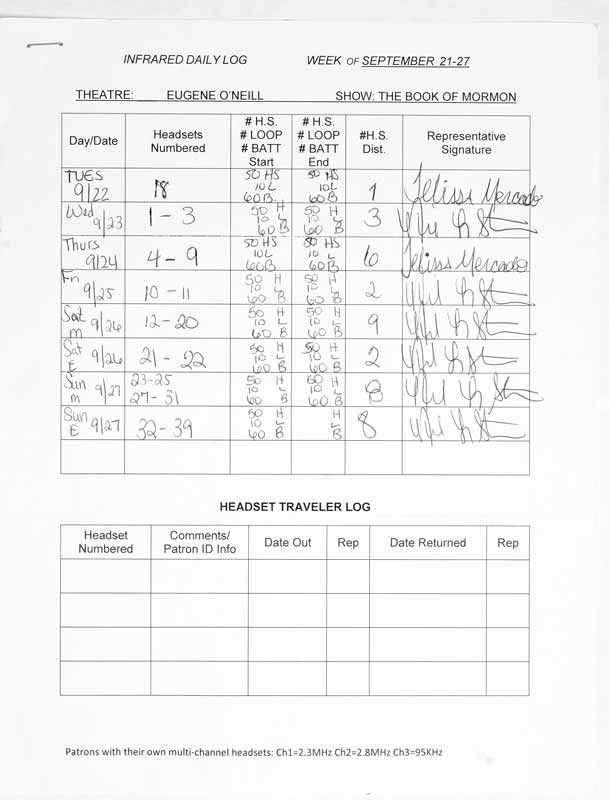 INFRARED DAILY LOG WEEK OF SEPTEMBER 21-27
THEATRE: EUGENE O'NEILL SHOW: THE BOOK OF MORMON
Day/Date
Headsets
Numbered
# H.S.
# LOOP
# BATT
Start
# H.S.
# LOOP
# BATT
End
#H.S.
Dist.
Representative
Signature
TUES
9/22
18
50 HS
10 L
60 B
50 HS
10 L
60 B
1
Mercado
Wed
9/23
1-3
50 H
10 L
60 B
50 H
10 L
60 B
3
Thurs
9/24
4-9
50 HS
10 L
60 B
50 HS
10 L
60 B
6
Mercado
Fri
9/25
10-11
50 H
10 L
60 B
50 H
10 L
60 B
2
Sat 9/26
m
12-20
50 H
10 L
60 B
50 H
10 L
60 B
9
Sat 9/26
E
21-22
50 H
10 L
60 B
50 H
10 L
60 B
2
Sun 9/27
m
23-25
27-31
50 H
10 L
60 B
50 H
10 L
60 B
8
Sun 9/27
E
32-39
50 H
10 L
60 B
H
L
B
8
HEADSET TRAVELER LOG
Headset
Numbered
Comments/
Patron ID Info
Date Out
Rep
Date Returned
Rep
Patrons with their own multi-channel headsets: Ch1=2.3MHz Ch2=2.8MHz Ch3=95KHz